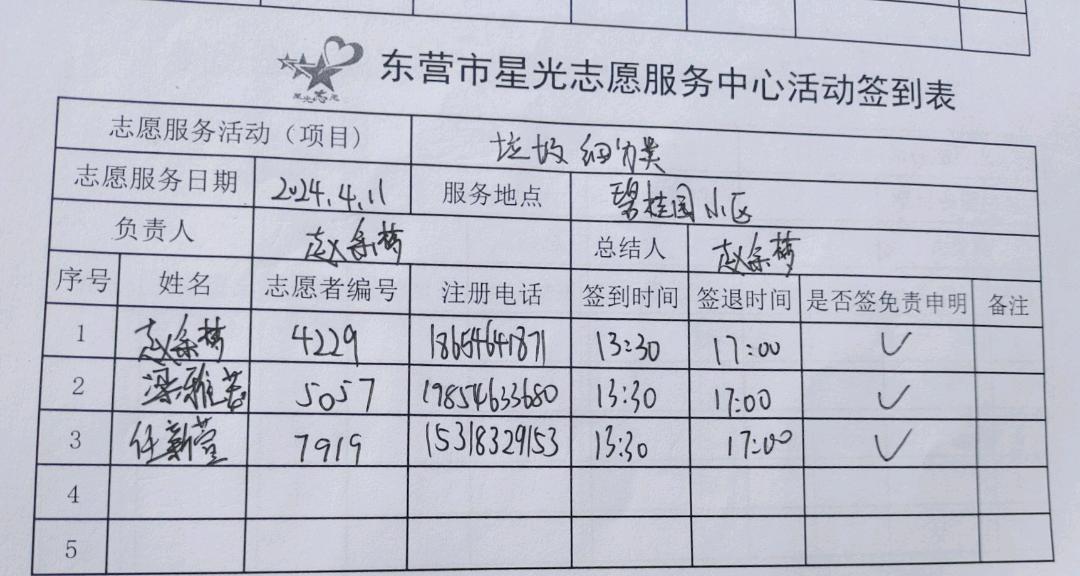 东营市星光志愿服务中心活动签到表
志愿服务活动（项目） 垃圾细分类
志愿服务日期 2024.4.11 服务地点 碧桂园小区
负责人 赵余梦 总结人 赵余梦
序号 姓名 志愿者编号 注册电话 签到时间 签退时间 是否签免责申明 备注
1 赵余梦 4229 18654641871 13:30 17:00 ✓
2 梁雅 5057 19854633680 13:30 17:00 ✓
3 任新萱 7919 15318329153 13:30 17:00 ✓
4
5